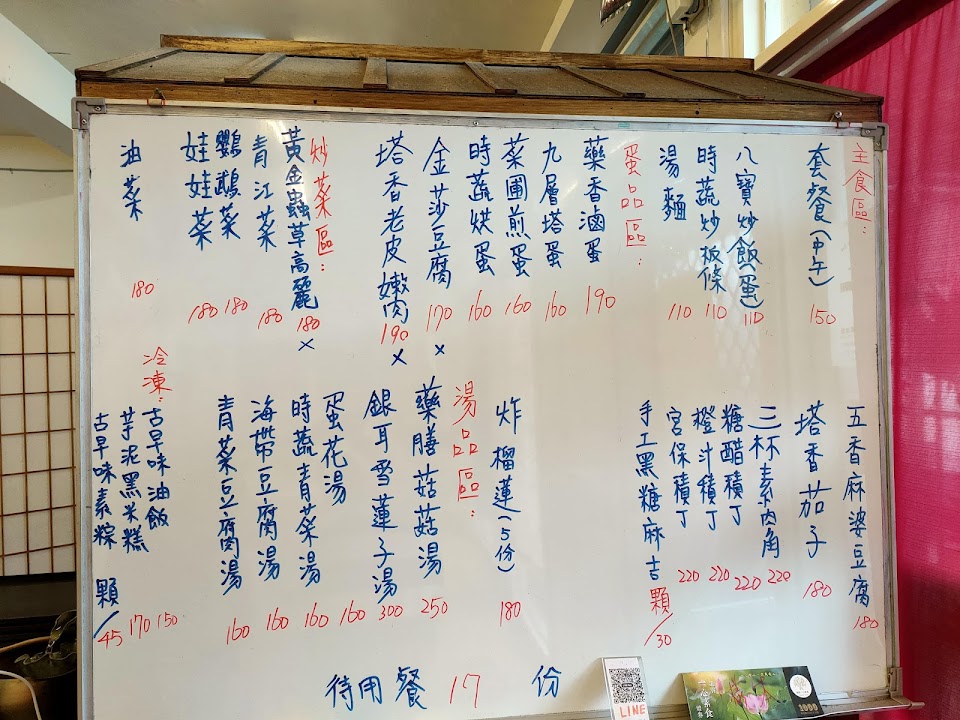 主食區：
套餐(中午) 150
八寶炒飯(蛋) 110
時蔬炒板條 110
湯麵 110
蛋品區：
藥香滷蛋 190
九層塔蛋 160
菜圃煎蛋 160
時蔬烘蛋 160
金莎豆腐 170 ×
塔香老皮嫩肉 190 ×
炒菜區：
黃金蟲草高麗 180 ×
青江菜 180
鸚鵡菜 180
娃娃菜 180
油菜 180
五香麻婆豆腐 180
塔香茄子 180
三杯素肉角 220
糖醋積丁 220
橙汁積丁 220
宮保積丁 220
手工黑糖麻吉 顆/30
炸榴蓮(5份) 180
湯品區：
藥膳菇菇湯 250
銀耳雪蓮子湯 300
蛋花湯 160
時蔬青菜湯 160
海帶豆腐湯 160
青菜豆腐湯 160
冷凍：
古早味油飯 150
芋泥黑米糕 170
古早味素粽 顆/45
待用餐 17 份
LINE